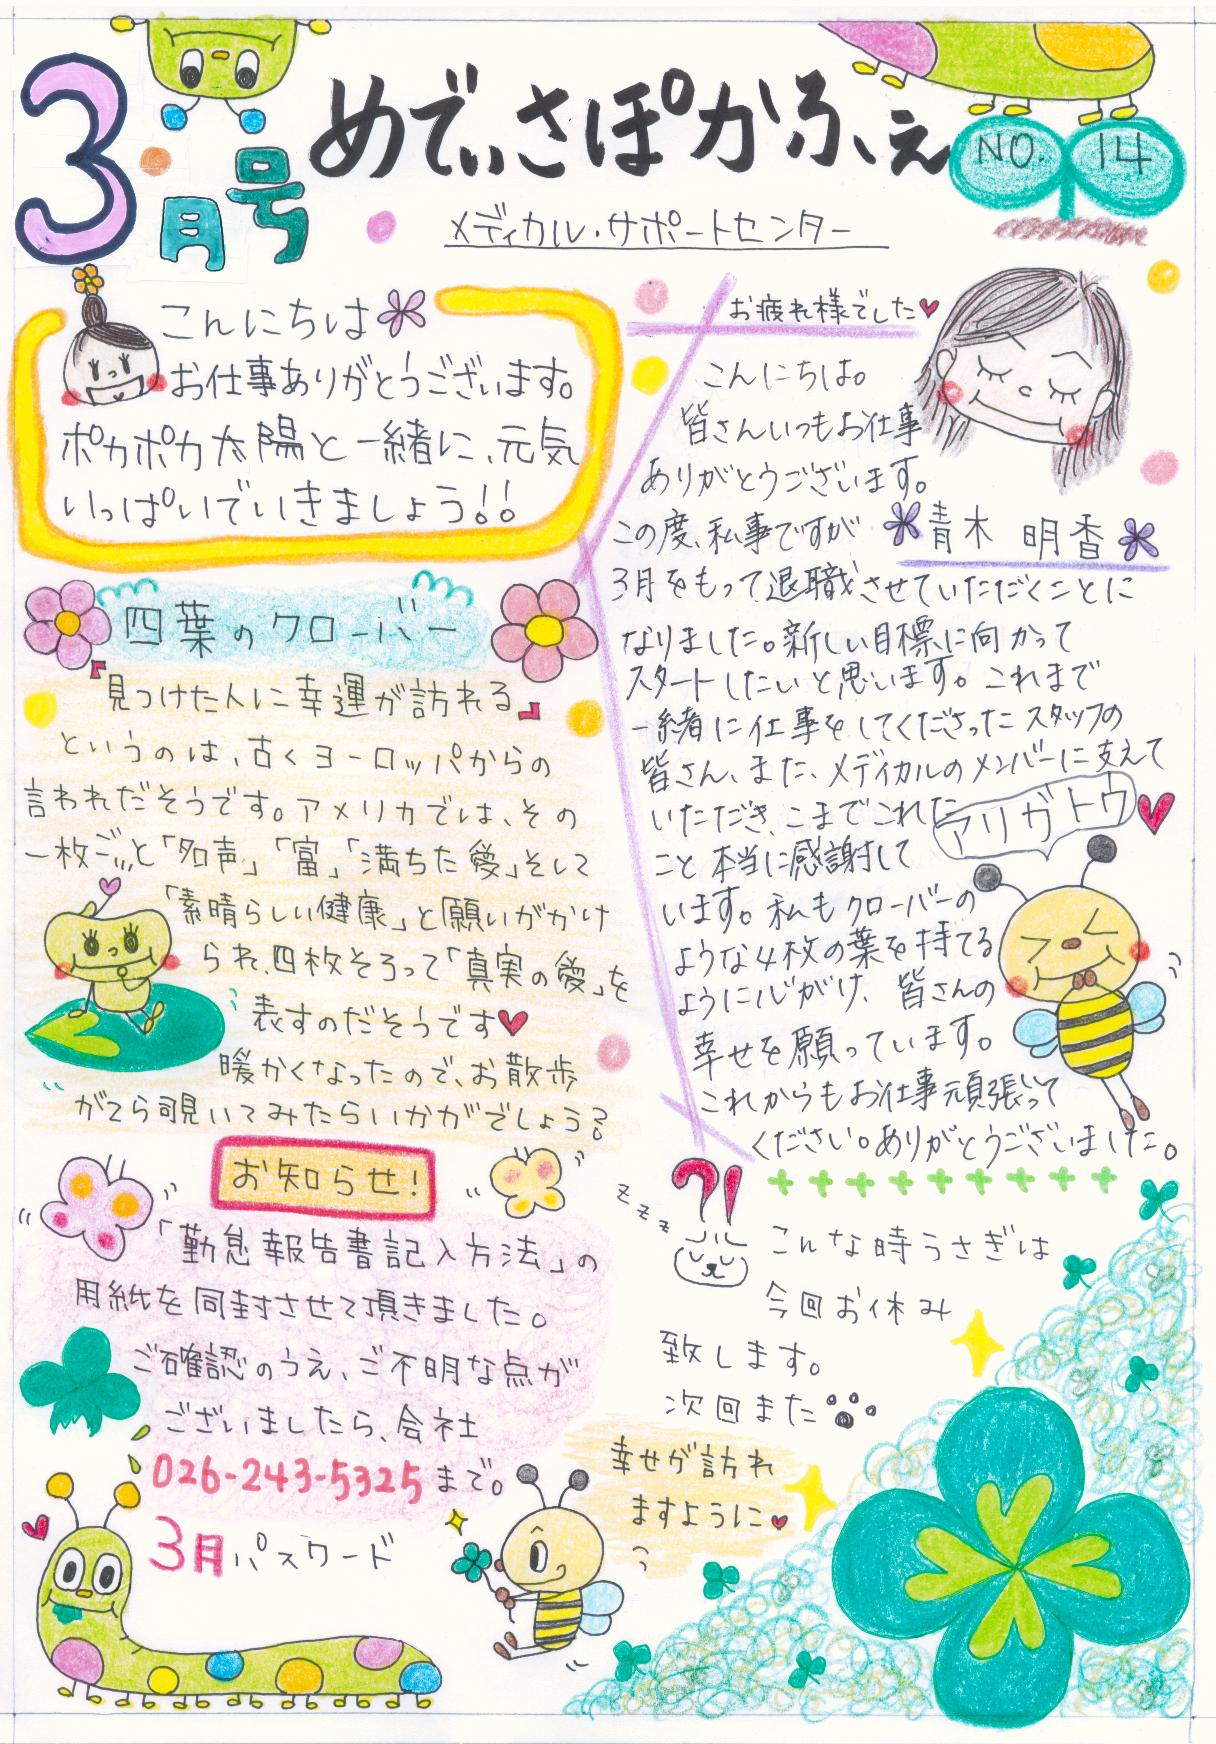 3月号
めでぃさぽかふぇ
NO. 14
メディカル・サポートセンター
こんにちは
お仕事ありがとうございます。
ポカポカ太陽と一緒に、元気
いっぱいでいきましょう!!
四葉のクローバー
『見つけた人に幸運が訪れる』
というのは、古くヨーロッパからの
言われだそうです。アメリカでは、その
一枚ごとに「名声」「富」「満ちた愛」そして
「素晴らしい健康」と願いがかけ
られ、四枚そろって「真実の愛」を
表すのだそうです
暖かくなったので、お散歩
がてら覗いてみたらいかがでしょう?
お知らせ!
「勤怠報告書記入方法」の
用紙を同封させて頂きました。
ご確認のうえ、ご不明な点が
ございましたら、会社
026-243-5325まで。
3月パスワード
お疲れ様でした
こんにちは。
皆さんいつもお仕事
ありがとうございます。
青木 明香
この度、私事ですが
3月をもって退職させていただくことに
なりました。新しい目標に向かって
スタートしたいと思います。これまで
一緒に仕事をしてくださったスタッフの
皆さん、また、メディカルのメンバーに支えて
いただき、こまでこれた
アリガトウ
こと本当に感謝して
います。私もクローバーの
ような4枚の葉を持てる
ように心がけ、皆さんの
幸せを願っています。
これからもお仕事頑張って
ください。ありがとうございました。
?!
zzz
こんな時うさぎは
今回お休み
致します。
次回また
幸せが訪れ
ますように